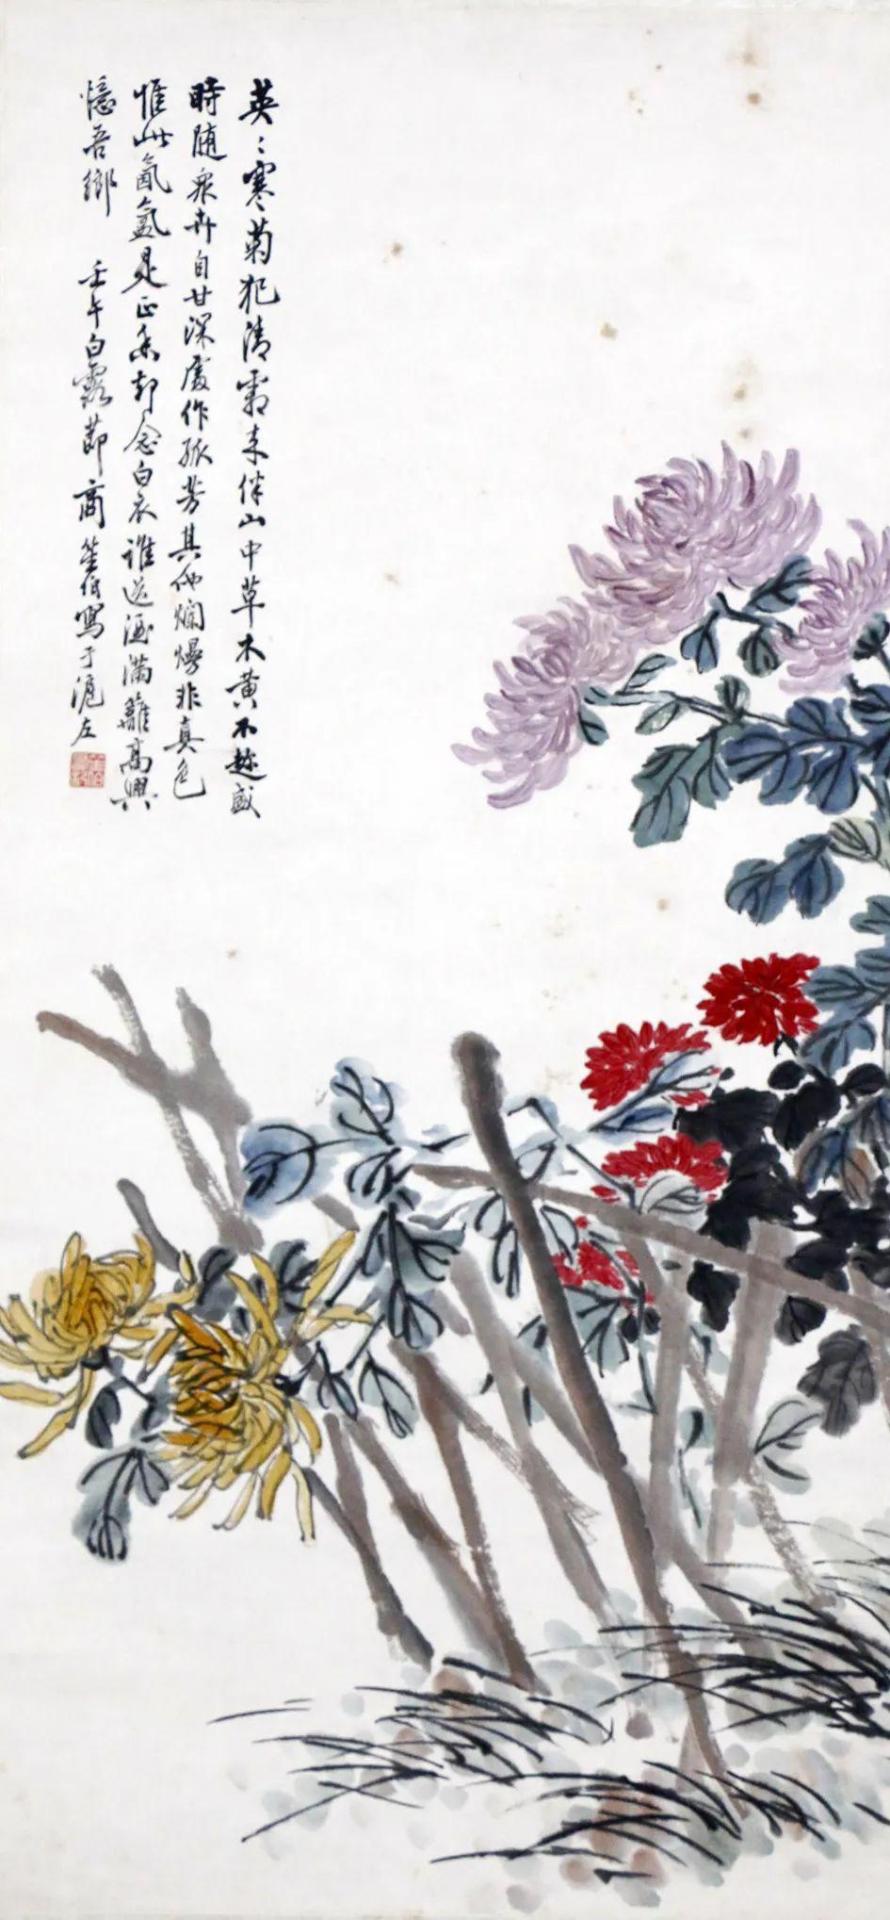 英〻寒菊犯清霜来伴山中草木黄不趁盛
時随众卉自甘深處作孤芳其他爛熳非真色
惟此氤氲是正香却念白衣誰送酒滿籬高興
憶吾鄉 壬午白露節商笙伯寫于滬左